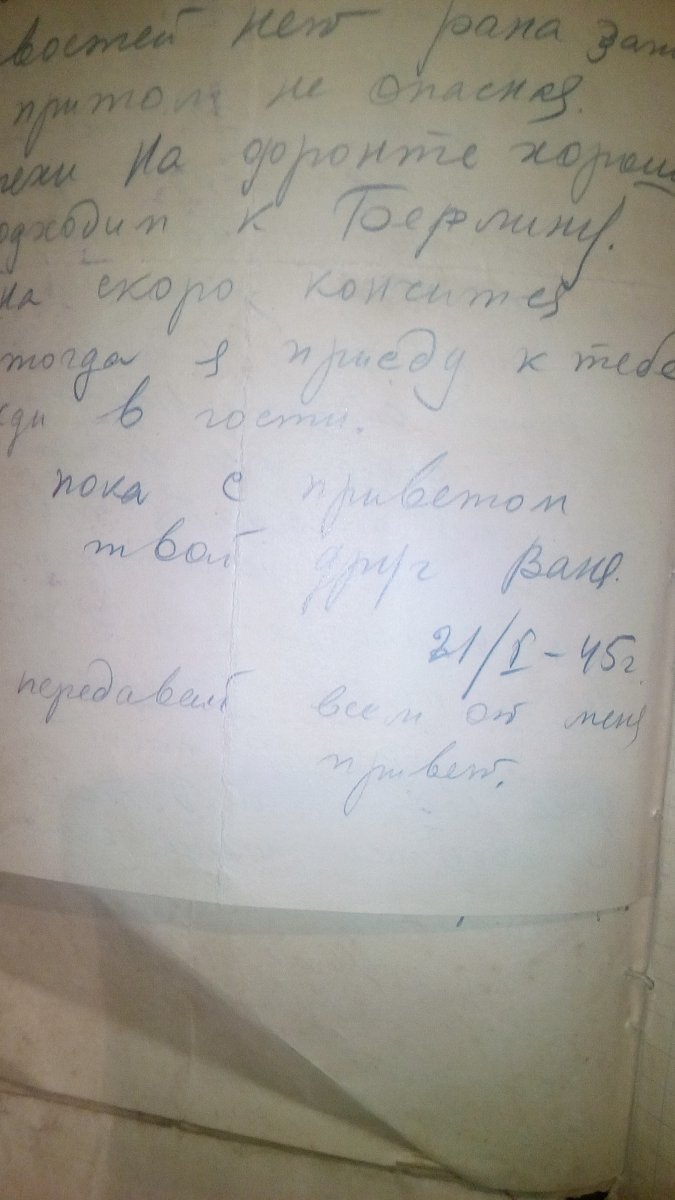 востей нет рана заж
притом не опасная.
пехи на фронте хорош
одходим к Берлину.
на скоро кончится
тогда я приеду к тебе
жди в гости.
пока с приветом
твой друг Ваня.
21/I-45г.
передавай всем от меня
привет.